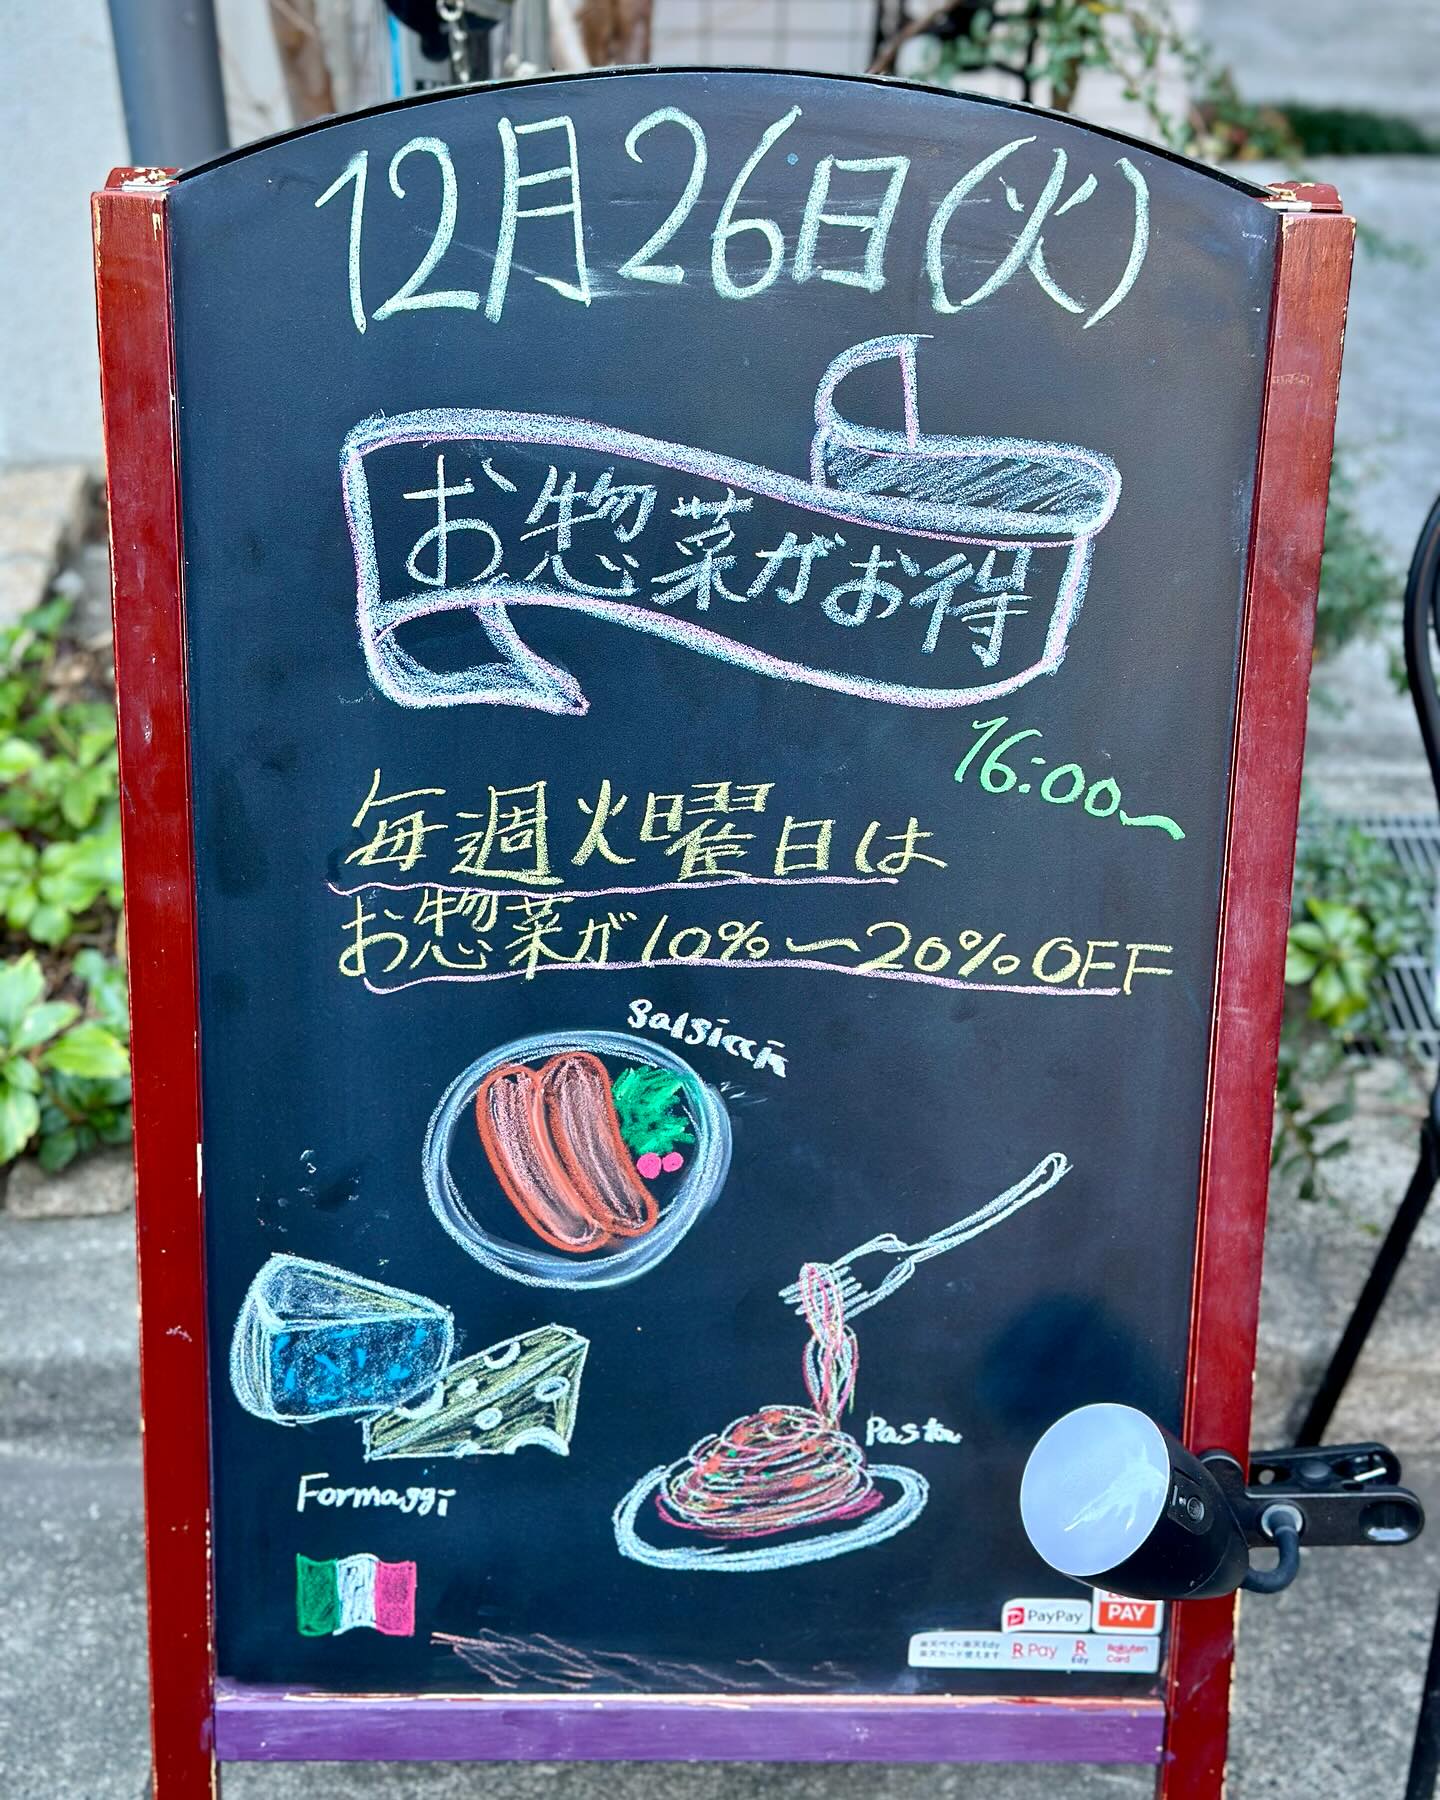 12月26日(火)
お惣菜がお得
16:00~
毎週火曜日は
お惣菜が10%~20%OFF
Salsiccia
Pasta
Formaggi
PayPay
PAY
楽天ペイ・楽天Edy
楽天カード使えます
R Pay
R Edy
Rakuten Card